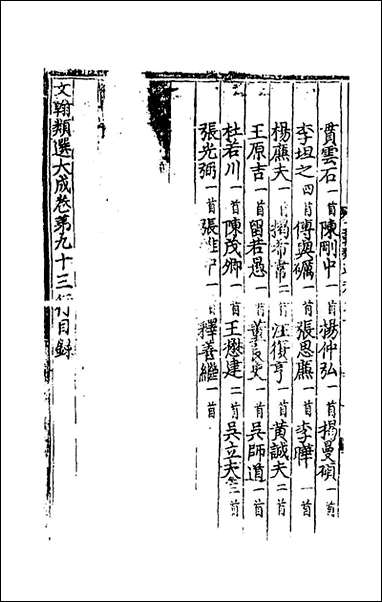 貫雲石一首陳剛中一首楊仲弘一首揭曼碩一首
李坦之四首傅與礪一首張思廉一首李曄一首
楊廉夫一首揭希常二首汪復亨一首黃誠夫二首
王原吉一首留若愚一首黃長史一首吳師道一首
杜若川一首陳茂卿一首王懋建二首吳立夫三首
張光弼一首張一首釋善繼一首
文翰類選大成卷第九十三目録